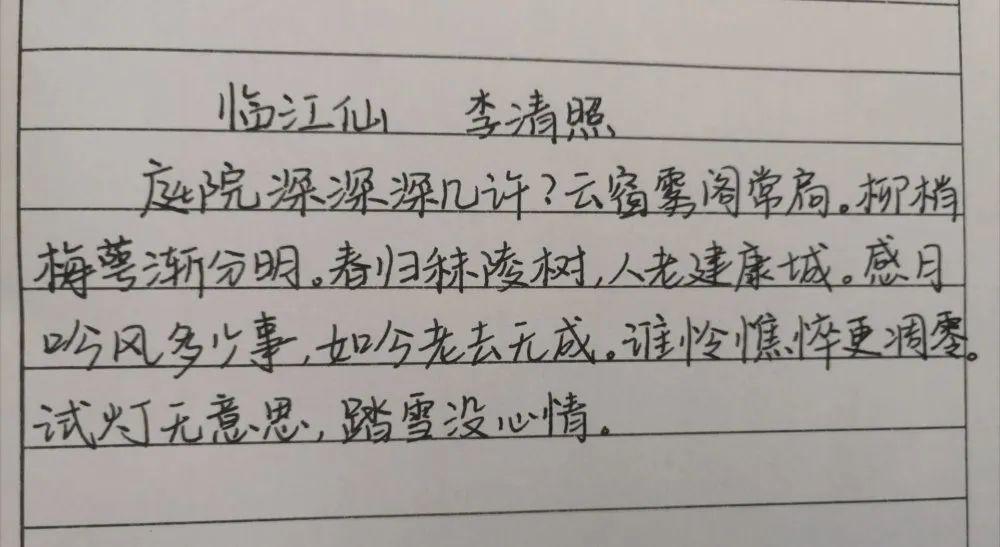 临江仙 李清照
庭院深深深几许？云窗雾阁常扃。柳梢
梅萼渐分明。春归秣陵树，人老建康城。感月
吟风多少事，如今老去无成。谁怜憔悴更凋零。
试灯无意思，踏雪没心情。